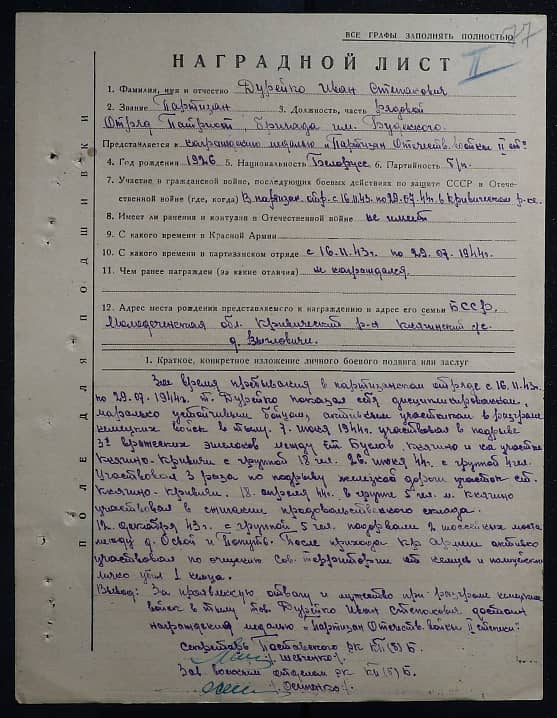 ВСЕ ГРАФЫ ЗАПОЛНЯТЬ ПОЛНОСТЬЮ
77
НАГРАДНОЙ ЛИСТ
II
1. Фамилия, имя и отчество Дурейко Иван Степанович
2. Звание Партизан 3. Должность, часть рядовой
Отряд "Патриот", бригада им. Буденного.
Представляется к награждению медалью "Партизан Отечеств. войны II ст"
4. Год рождения 1926 5. Национальность Белорусс 6. Партийность б/п.
7. Участие в гражданской войне, последующих боевых действиях по защите СССР и Отече-
ственной войне (где, когда) В партизан. отр. с 16.11.43г. по 29.07.44г. в Кривичском р-не.
8. Имеет ли ранения и контузии в Отечественной войне не имеет
9. С какого времени в Красной Армии
10. С какого времени в партизанском отряде с 16.11.43г. по 29.07.1944г.
11. Чем ранее награжден (за какие отличия) не награждался.
12. Адрес места рождения представляемого к награждению и адрес его семьи БССР,
Молодеченская обл. Кривичский р-н Княгинский с/с.
д.
ПОЛЕ ДЛЯ ПОДШИВКИ
1. Краткое, конкретное изложение личного боевого подвига или заслуг
За время пребывания в партизанском отряде с 16.11.43г.
по 29.07.1944г. т. Дурейко показал себя дисциплинированным,
морально устойчивым бойцом, активным участником в разгроме
немецких войск в тылу. 7 июня 1944г. участвовал в подрыве
3х вражеских эшелонов между ст Буслов Княгино и на участке
Княгино-Кривичи с группой 18 чел. 26 июня 44г. с группой 4 чел.
Участвовал 3 раза по подрыву железной дороги участок ст.
Княгино-Кривичи. 18 апреля 44г. в группе 5 чел. м. Княгино
участвовал в сжигании продовольственного склада.
12 декабря 43г. с группой 5 чел. подорвали 2 шоссейных моста
между д. и. После прихода Кр Армии активно
участвовал по очищению Сов. территории от немцев и полицейских
лично убил 1 немца.
Вывод: За проявленную отвагу и мужество при разгроме немецких
войск в тылу тов Дурейко Иван Степанович достоин
награждения медалью "Партизан Отечеств. войны II степени".
Секретарь Поставского РК КП(б)Б.
/Шевченко/.
Зав военным отделом РК КП(б)Б.
/Осипенко/.